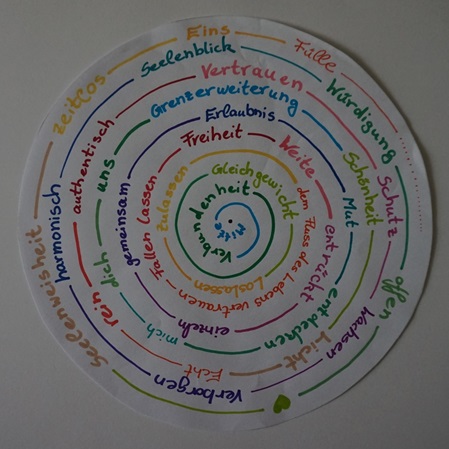 Mitte
Verbundenheit
Gleichgewicht
Loslassen
zulassen
dem Fluss des Lebens vertrauen
Fallen lassen
Freiheit
Weite
entrückt
gemeinsam
Erlaubnis
Mut
entdecken
mich
dich
uns
Grenzerweiterung
Schönheit
Licht
Echt
rein
authentisch
Vertrauen
Schutz
Wachsen
Verborgen
harmonisch
Seelenblick
Würdigung
offen
Seelenweisheit
zeitlos
Eins
Fülle